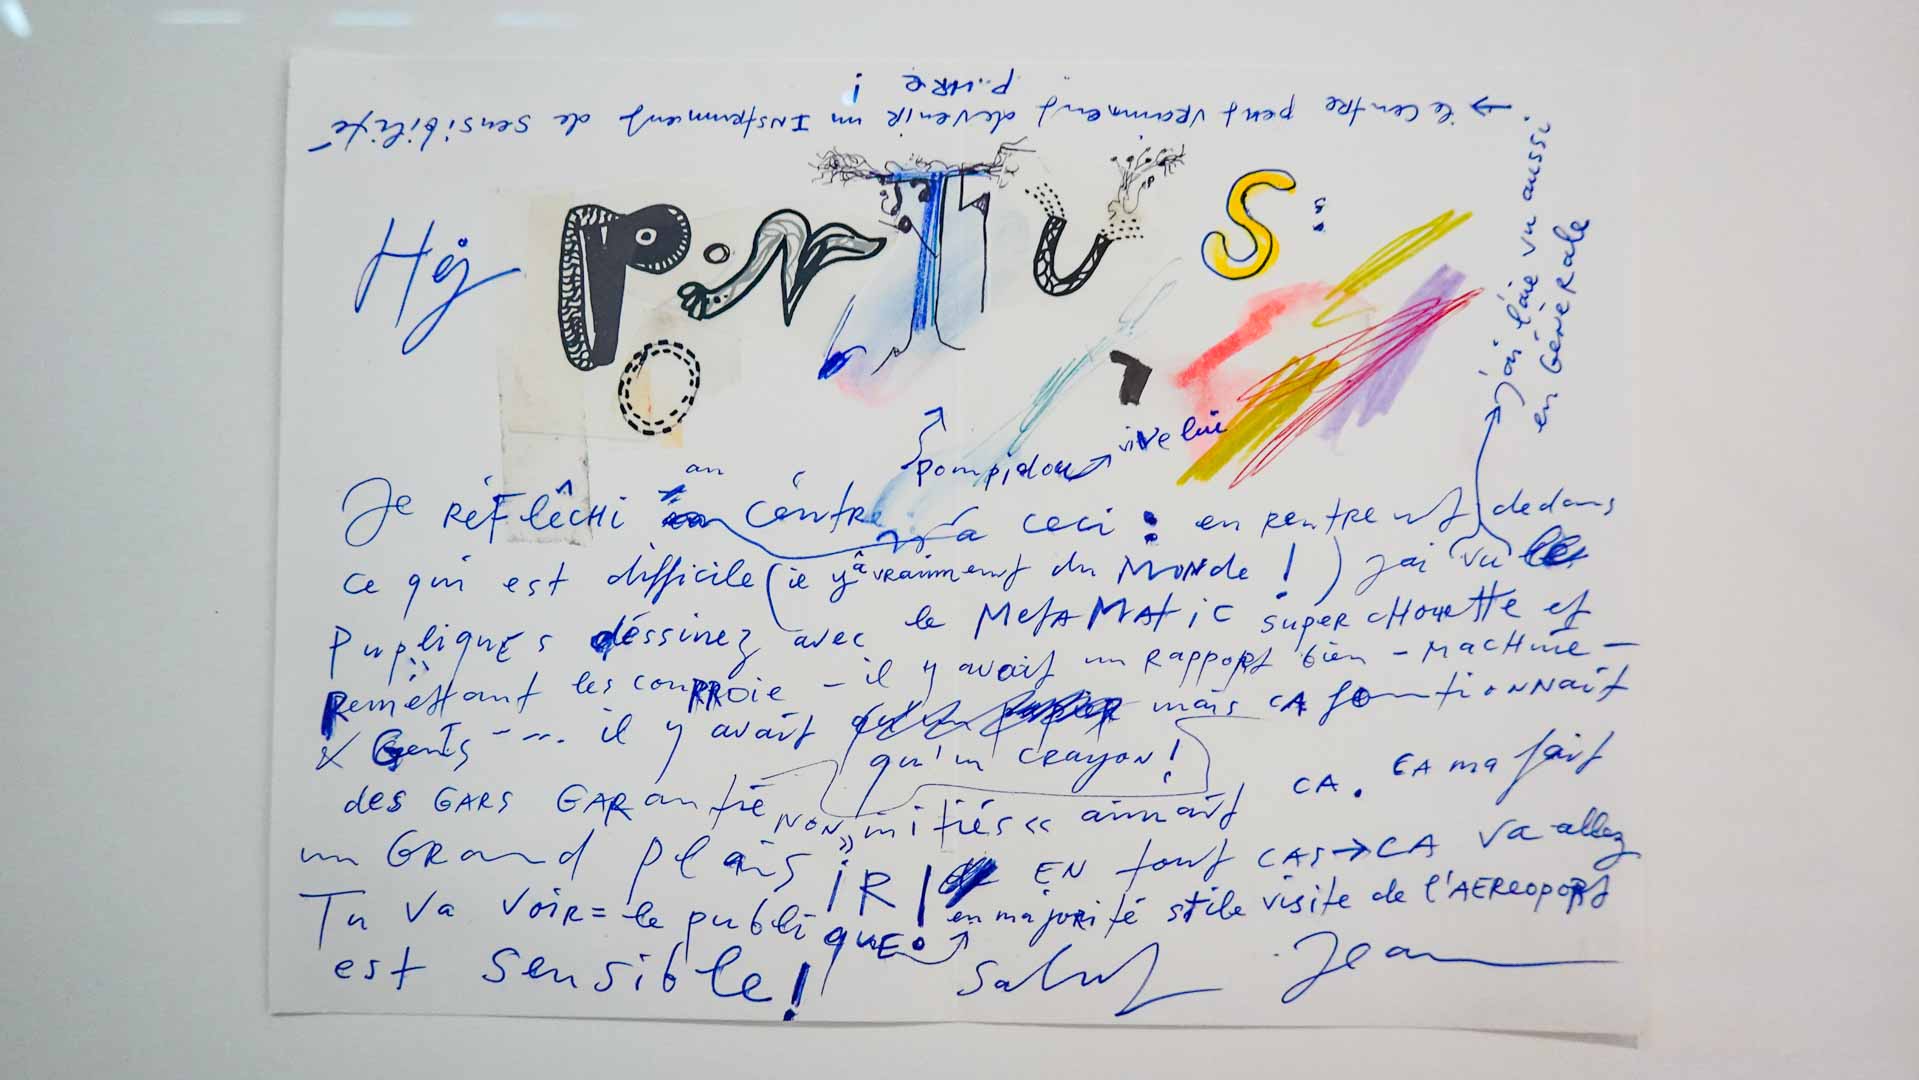 → le centre peut vraimment devenir un INstrumment de sensibilité
p..URe !
Hej PoNTUS
j'ai l'aie vu aussi
en GéNéRale
pompidou → vive lui
Je RéFLêCHi au Céntre a ceci : en rentrent dedans
ce qui est difficile (ie y â vraimment du MoNde ! ) j'ai vu le
pupliques déssinez avec le MetAMAtiC super cHouette et
Reméttant les couRRoie – il y avait un RAppoRt bien – MacHine –
& Gents – – .. il y avait mais CA fontioNNait
qu'un CRayoN !
des GARS GARantie NON mitiés « aimait CA . CA ma fait
un GRand plaisiR ! EN tout CAS → CA va allez
Tu Va VoiR = le publiqUE. en majorité stile visite de l'AEReopoRt
est sensible !
Salut Jean